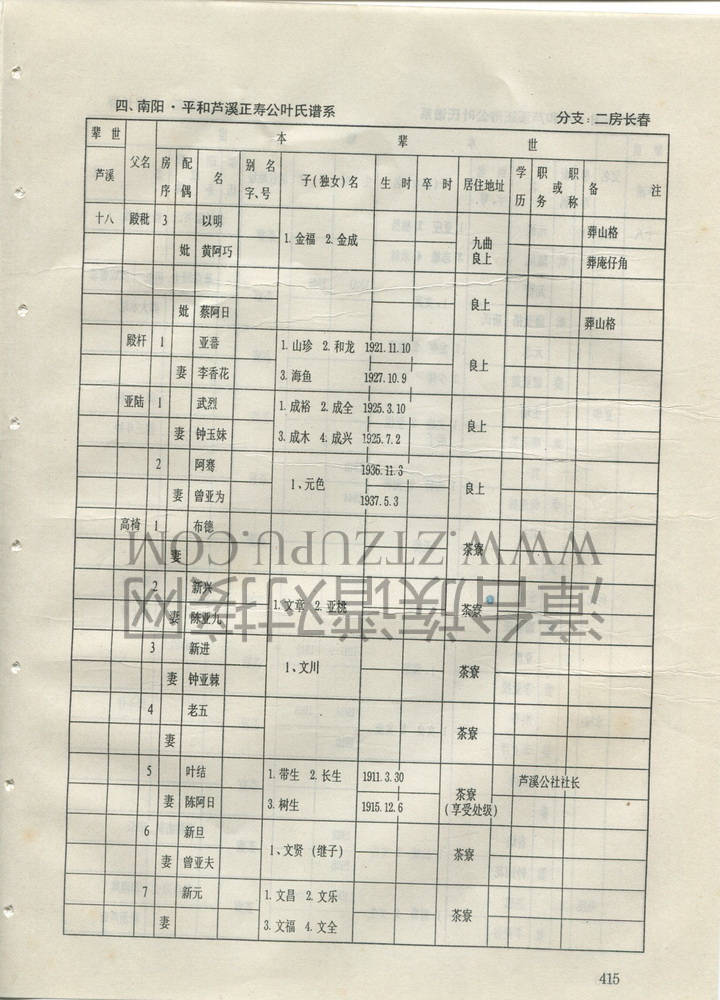 四、南阳·平和芦溪正寿公叶氏谱系 分支：二房长春
辈世 本 辈 世
芦溪 父名 房序 配偶 名 别名字、号 子(独女)名 生 时 卒 时 居住地址 学历 职务或职称 备 注
十八 殿秕 3 以明 1.金福 2.金成 九曲 良上 葬山格
妣 黄阿巧 葬庵仔角
良上
妣 蔡阿日 葬山格
殿杆 1 亚蕃 1.山珍 2.和龙 1921.11.10 良上
妻 李香花 3.海鱼 1927.10.9
亚陆 1 武烈 1.成裕 2.成全 1925.3.10 良上
妻 钟玉妹 3.成木 4.成兴 1925.7.2
2 阿骞 1、元色 1936.11.3 良上
妻 曾亚为 1937.5.3
高椅 1 布德 茶寮
妻
2 新兴 1.文章 2.亚桃 茶寮
妻 陈亚九
3 新进 1、文川 茶寮
妻 钟亚棘
4 老五 茶寮
妻
5 叶结 1.带生 2.长生 1911.3.30 茶寮 芦溪公社社长
妻 陈阿日 3.树生 1915.12.6 (享受处级)
6 新旦 1、文贤 (继子) 茶寮
妻 曾亚夫
7 新元 1.文昌 2.文乐 茶寮
妻 3.文福 4.文全
415
WWW.ZTZUPU.COM
漳台族谱对接网